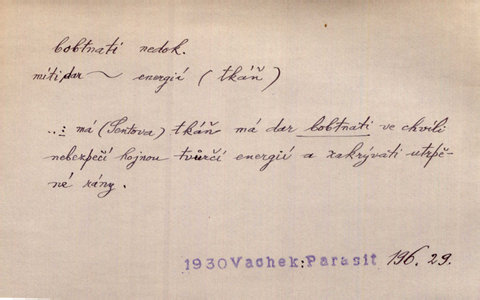 bobtnati nedok.
míti dar ~ energií (tkáň)
..: má (Sentova) tkáň má dar bobtnati ve chvíli
nebezpečí hojnou tvůrčí energií a zakrývati utrpě-
né rány.
1930 Vachek: Parasit 196. 29.